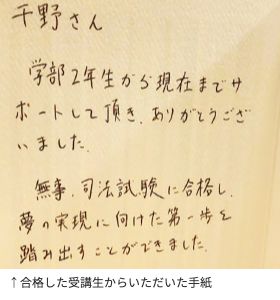 千野さん
学部2年生から現在までサ
ポートして頂き、ありがとうござ
いました。
無事、司法試験に合格し、
夢の実現に向けた第一歩を
踏み出すことができました。
↑合格した受講生からいただいた手紙